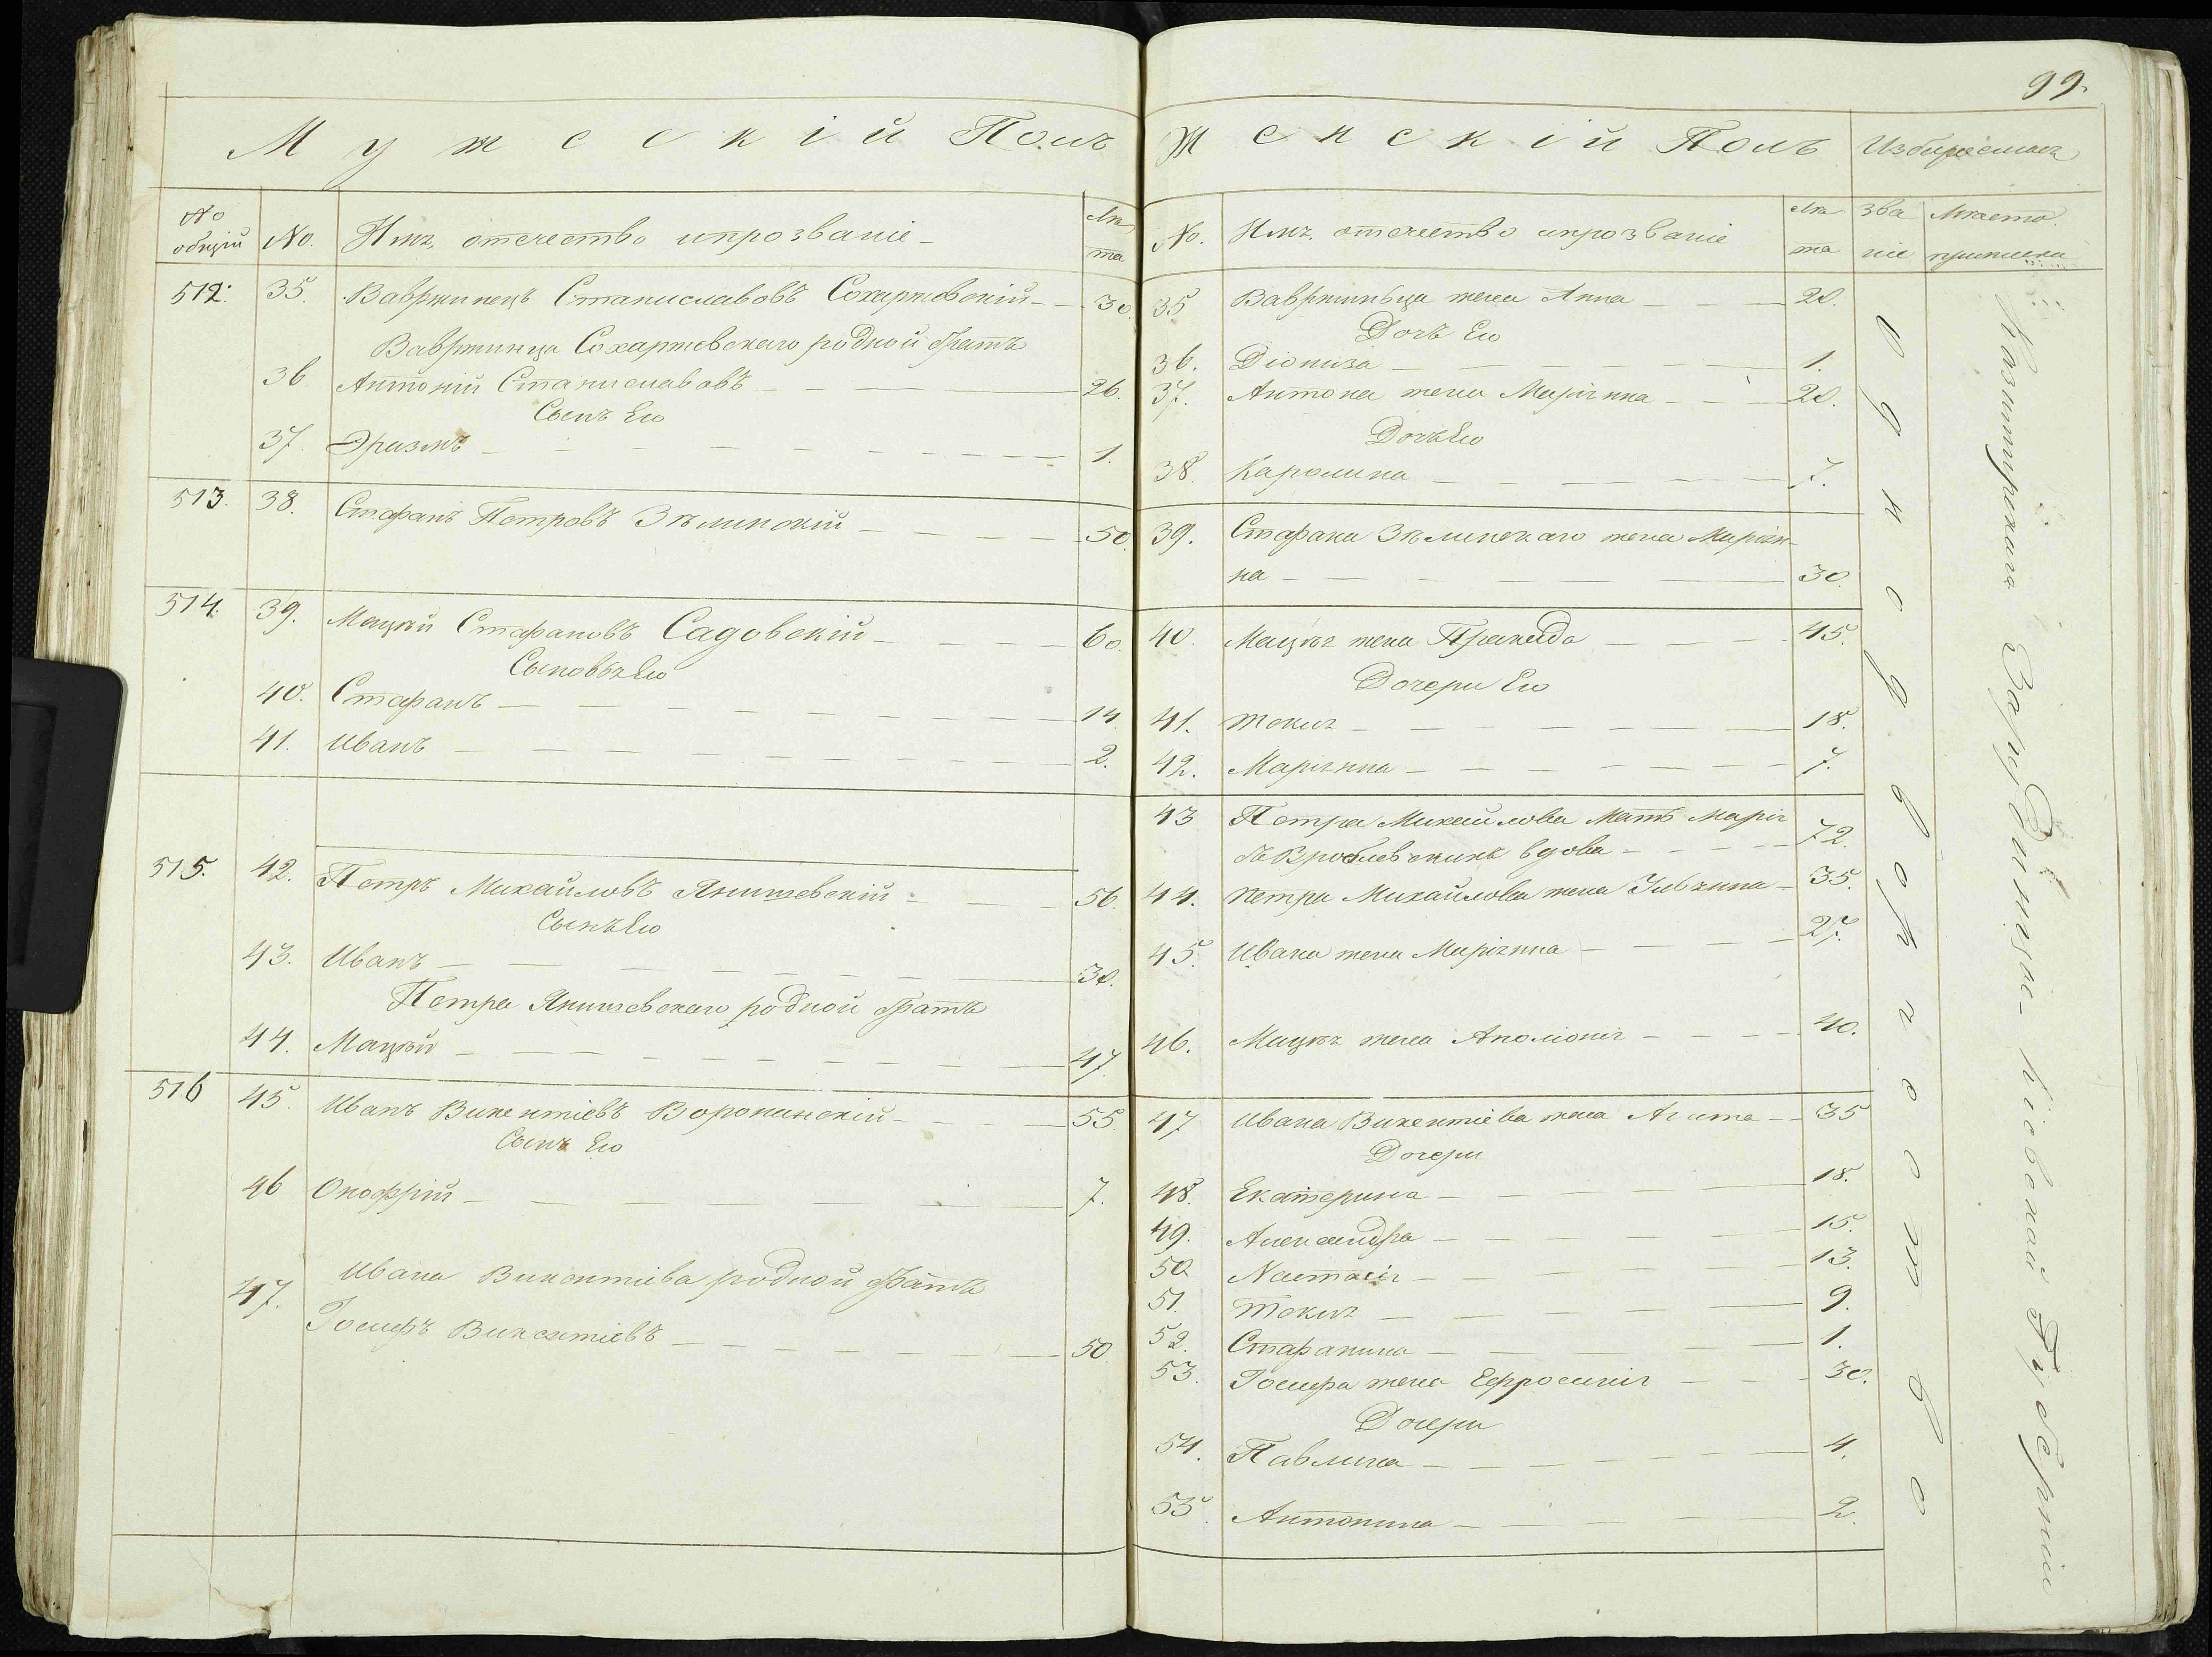 99.
Мужескій Полъ
№ общій
№
Имя, отечество и прозваніе
Лѣта
512. 35. Вавржинецъ Станиславовъ Сохаржевскій 30.
Вавржинца Сохаржевскаго родной братъ
36. Антоній Станиславовъ 26.
Сынъ Его
37. Эразмъ 1.
513. 38. Стефанъ Петровъ Зѣлинскій 50.
514. 39. Мацѣй Стефановъ Садовскій 60.
Сыновья Его
40. Стефанъ 14.
41. Иванъ 2.
515. 42. Петръ Михайловъ Янишевскій 56.
Сынъ Его
43. Иванъ 30.
Петра Янишевскаго родной братъ
44. Мацѣй 47.
516 45. Иванъ Викентіевъ Воронинскій 55.
Сынъ Его
46 Онофрій 7.
Ивана Викентіева родной братъ
47. Іосифъ Викентіевъ 50.
Женскій Полъ
Избираемыя
№
Имя, отечество и прозваніе
Лѣта
званіе
Мѣсто
35 Вавржинца жена Анна 20.
Дочь Его
36. Діониза 1.
37. Антона жена Маріянна 20.
Дочь Его
38. Каролина 7.
39. Стефана Зѣлинскаго жена Маріян-
на 30.
40. Мацѣя жена Пракседа 45.
Дочери Его
41. Текля 18.
42. Маріянна 7.
43 Петра Михайлова Мать Марія
вдова 72.
44. Петра Михайлова жена 35.
45. Ивана жена Маріянна 27.
46. Мацѣя жена Аполонія 40.
47 Ивана Викентіева жена Агата 35
Дочери
48. Екатерина 18.
49. Александра 15.
50. Настасія 13.
51. Текля 9.
52. Стефанина 1.
53. Іосифа жена Ефросинія 30.
Дочери
54. Павлина 4.
55. Антонина 2.
однодворчество
Казитирскаго Кіевской Губерніи